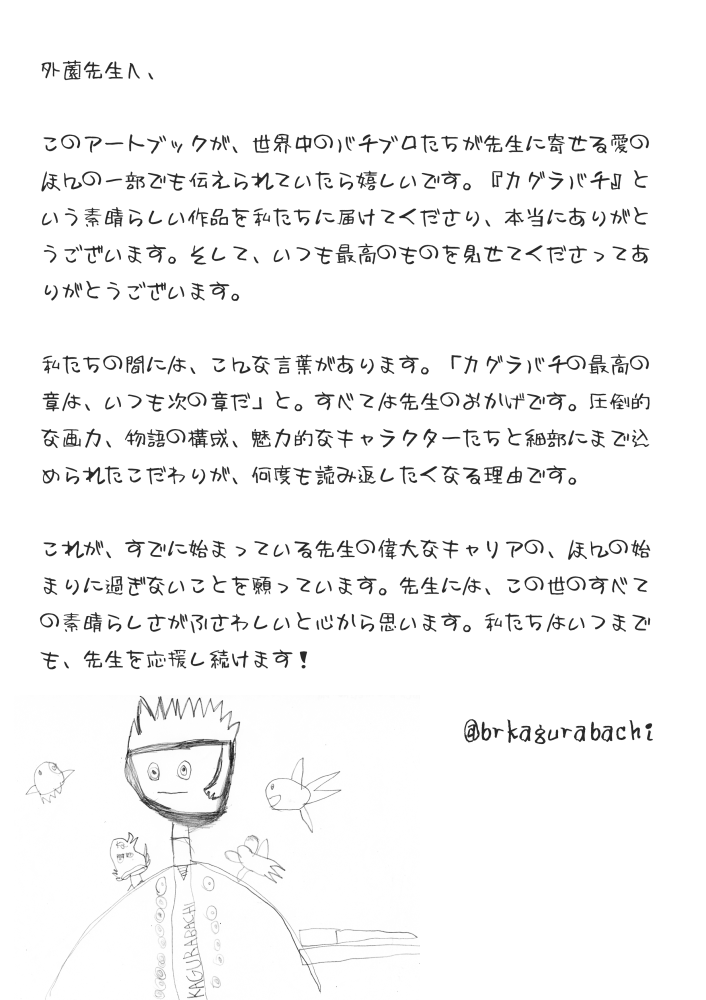 外薗先生へ、
このアートブックが、世界中のバチブロたちが先生に寄せる愛の
ほんの一部でも伝えられていたら嬉しいです。『カグラバチ』と
いう素晴らしい作品を私たちに届けてくださり、本当にありがと
うございます。そして、いつも最高のものを見せてくださってあ
りがとうございます。
私たちの間には、こんな言葉があります。「カグラバチの最高の
章は、いつも次の章だ」と。すべては先生のおかげです。圧倒的
な画力、物語の構成、魅力的なキャラクターたちと細部にまで込
められたこだわりが、何度も読み返したくなる理由です。
これが、すでに始まっている先生の偉大なキャリアの、ほんの始
まりに過ぎないことを願っています。先生には、この世のすべて
の素晴らしさがふさわしいと心から思います。私たちはいつまで
も、先生を応援し続けます！
@brkagurabachi
KAGURABACHI